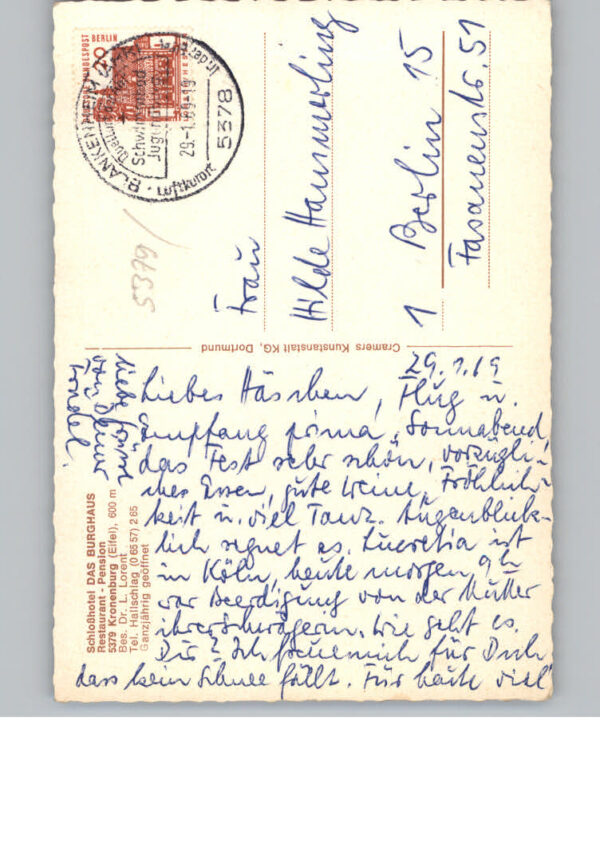 DEUTSCHE BUNDESPOST BERLIN
BLANKENHEIM (AHR)
Schwimmbad
Jugendh
29.-1.69-19
Luftkurort
5378
5379/
Frau
Hilde Hammerling
1 Berlin 15
Fasanenstr. 51
Cramers Kunstanstalt KG, Dortmund
29.1.69
Liebes Häschen, Flug u.
Empfang prima, Sonnabend,
das Fest sehr schön, vorzügli-
ches Essen, gute Weine, Fröhlich-
keit u. viel Tanz. Augenblick-
lich regnet es. Lucretia ist
in Köln, heute morgen 9 h
war Beerdigung von der Mutter
ihrer Schwägerin. Wie geht es
Dir? Ich freue mich für Dich
dass kein Schnee fällt. Für heute viel
liebe Grüsse
von Deiner
Trudel.
Schloßhotel DAS BURGHAUS
Restaurant - Pension
5379 Kronenburg (Eifel), 600 m
Bes. Dr. L. Lorent
Tel. Hallschlag (0 65 57) 2 65
Ganzjährig geöffnet